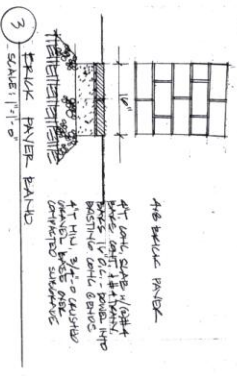 4x8 BRICK PAVER
16"
4" T. CONC SLAB W/ (2) #4
BARS CONT. & #4 TRANV.
BARS 16" O.C. - DOWEL INTO
EXISTING CONC BANDS
4" T. MIN. 3/4"-0 CRUSHED
GRAVEL BASE OVER
COMPACTED SUBGRADE
3 BRICK PAVER BAND
SCALE: 1"=1'-0"